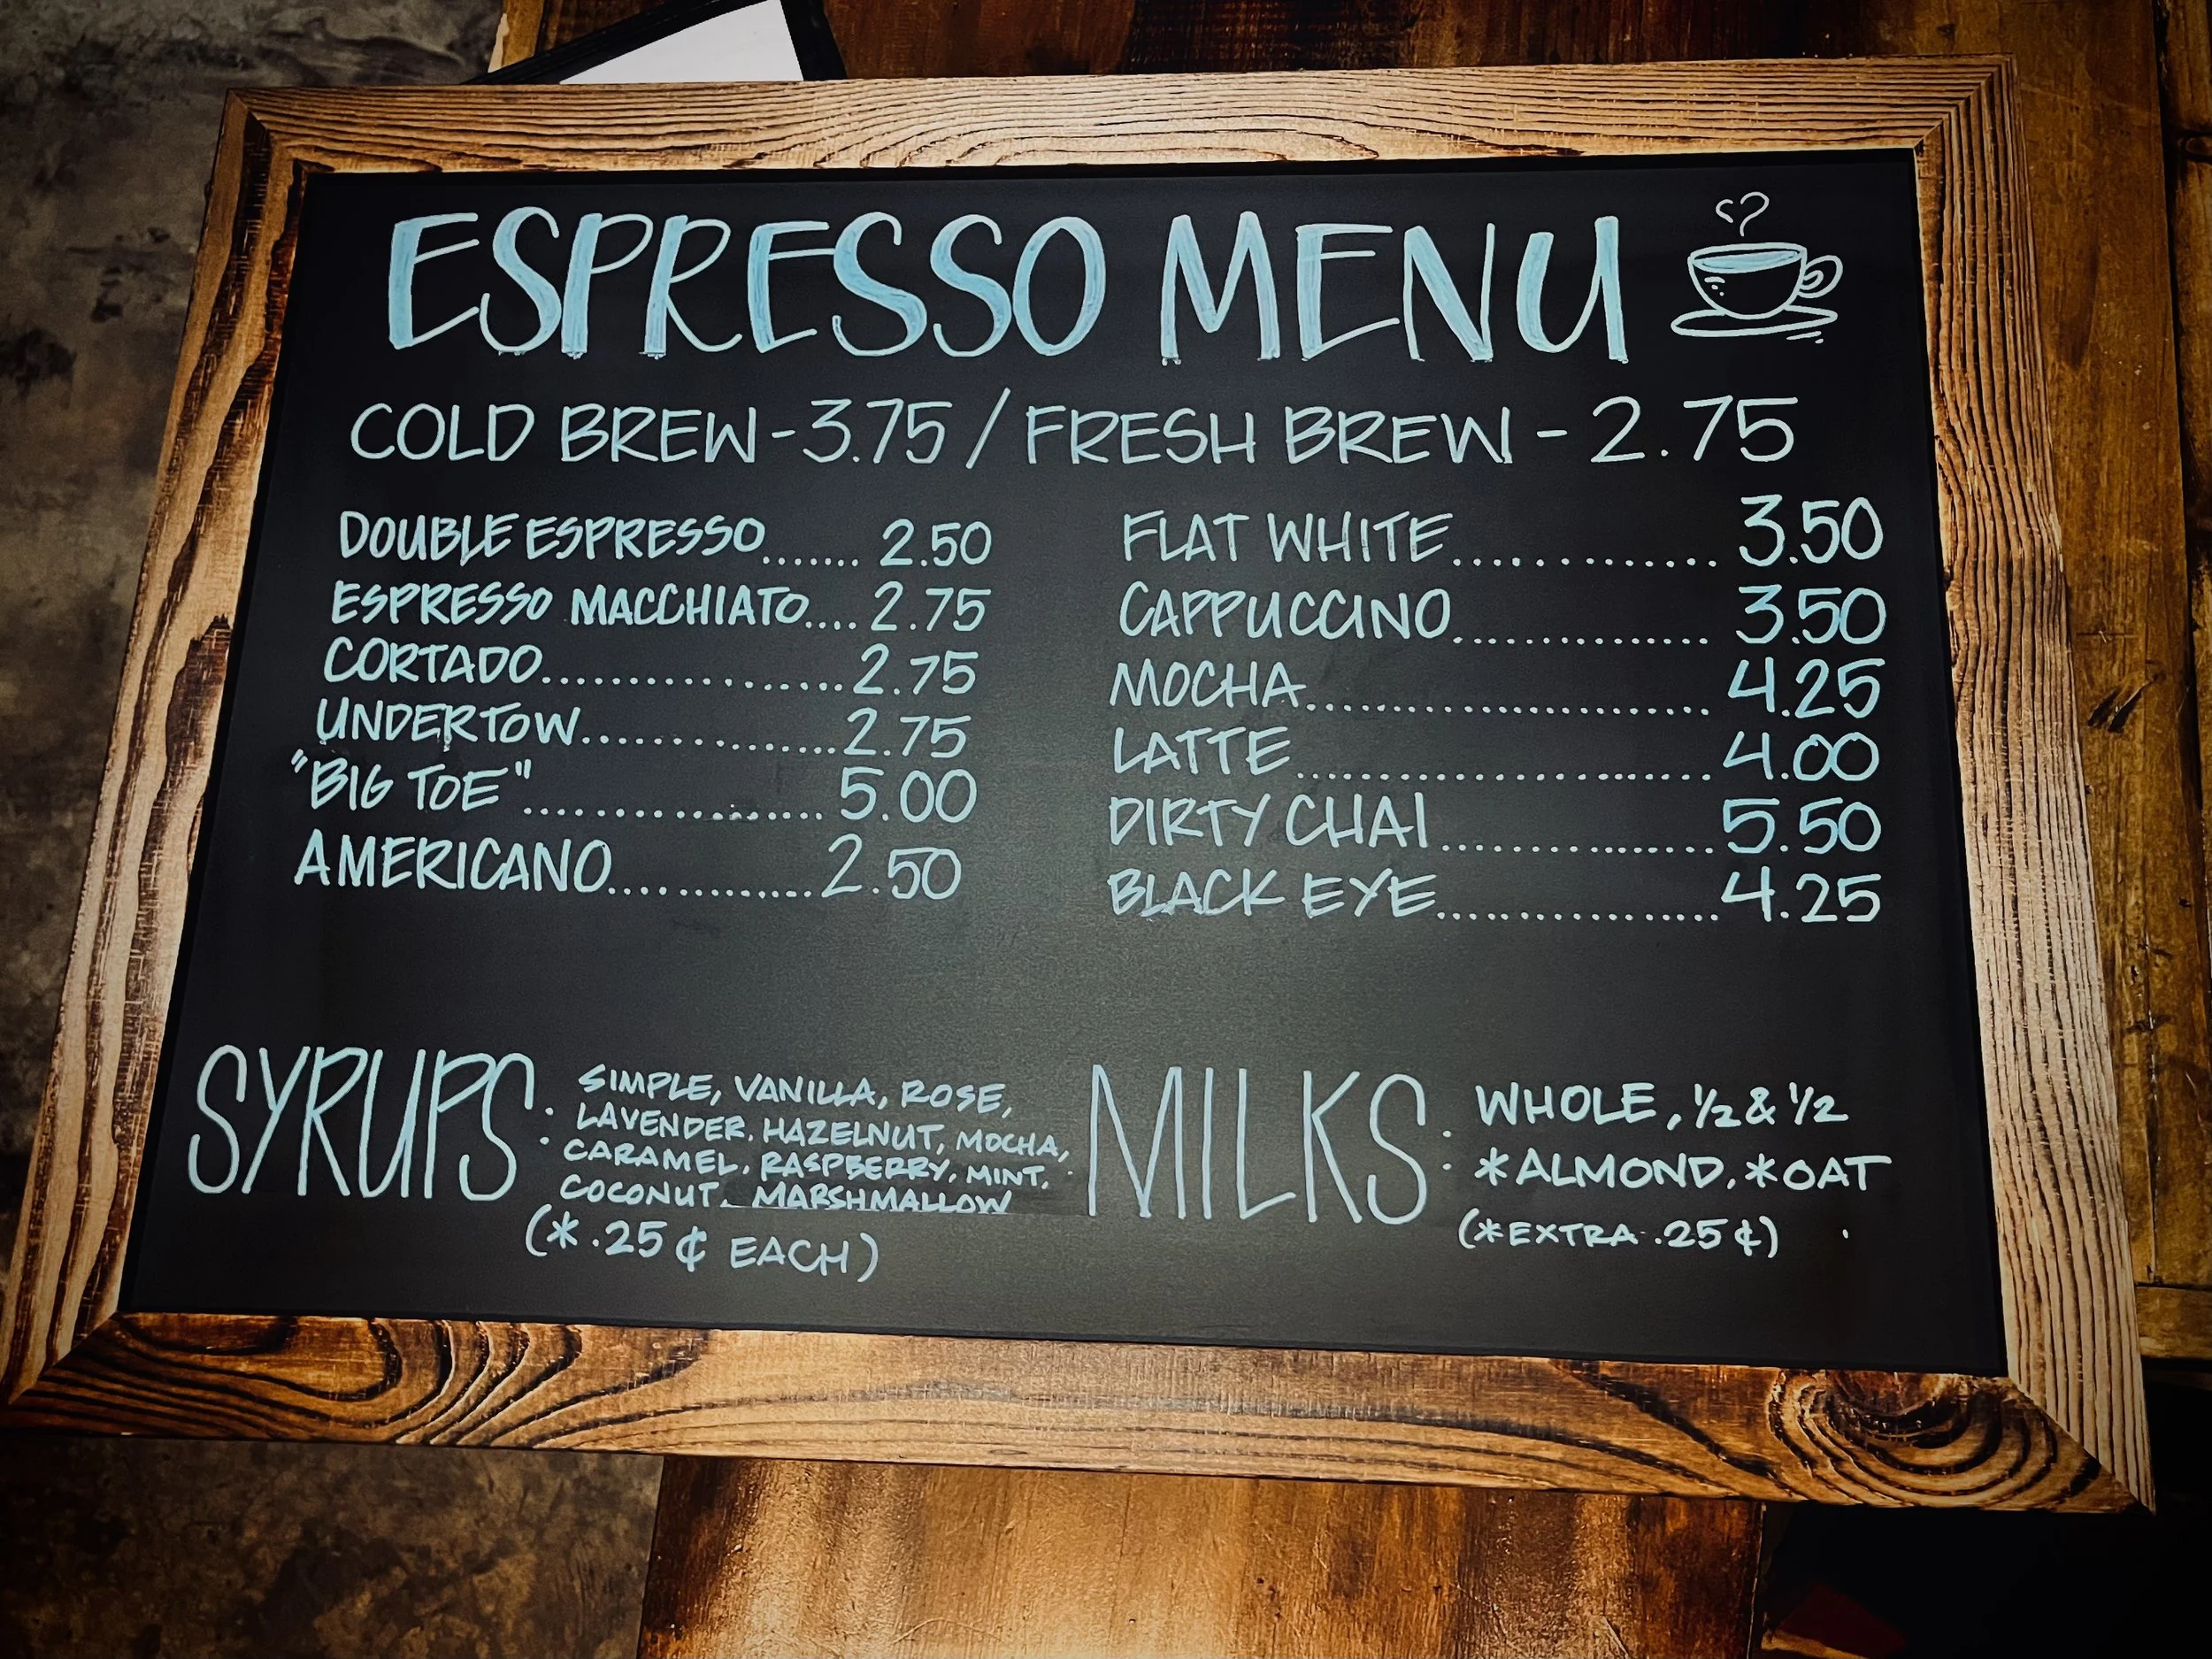 ESPRESSO MENU
COLD BREW - 3.75 / FRESH BREW - 2.75
DOUBLE ESPRESSO....... 2.50
ESPRESSO MACCHIATO.... 2.75
CORTADO.................. 2.75
UNDERTOW................ 2.75
"BIG TOE".................. 5.00
AMERICANO............. 2.50
FLAT WHITE............. 3.50
CAPPUCCINO............. 3.50
MOCHA........................ 4.25
LATTE......................... 4.00
DIRTY CHAI................. 5.50
BLACK EYE................. 4.25
SYRUPS: SIMPLE, VANILLA, ROSE,
LAVENDER, HAZELNUT, MOCHA,
CARAMEL, RASPBERRY, MINT,
COCONUT, MARSHMALLOW
(*.25¢ EACH)
MILKS: WHOLE, ½ & ½
*ALMOND, *OAT
(*EXTRA .25¢)